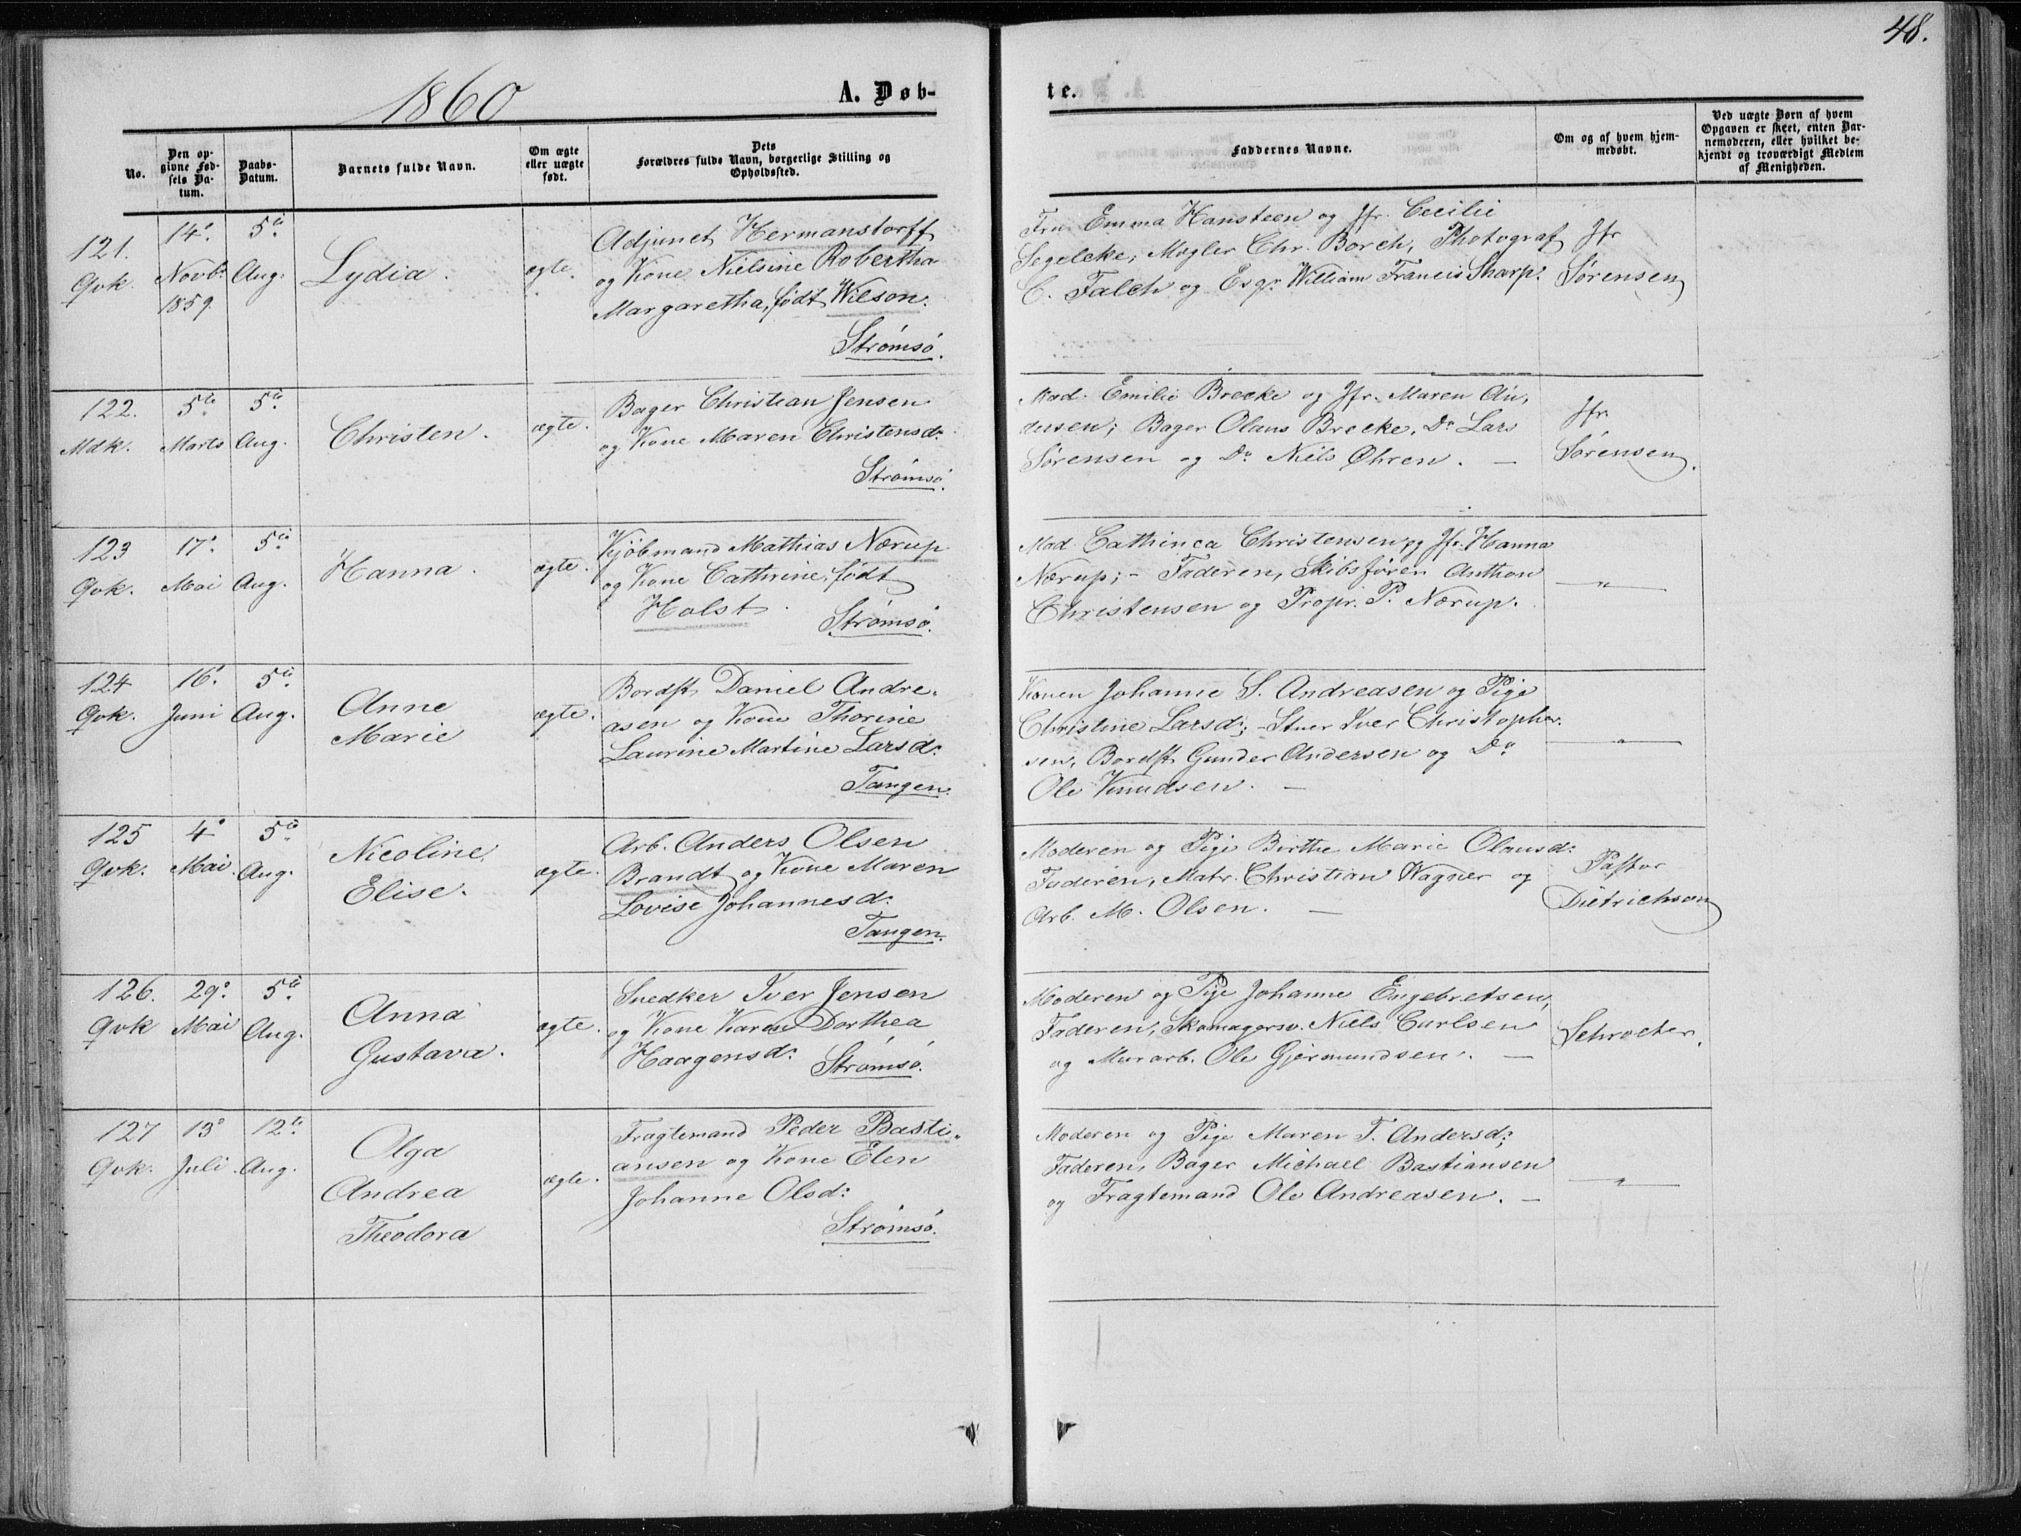 48.
1860
A. Døb-
te.
No.
Den op-
givne Fød-
sels Da-
tum.
Daabs-
Datum.
Barnets fulde Navn.
Om ægte
eller uægte
født.
Dets
Forældres fulde Navn, borgerlige Stilling og
Opholdssted.
Faddernes Navne.
Om og af hvem hjem-
medøbt.
Ved uægte Børn af hvem
Opgaven er skeet, enten Bar-
nemoderen, eller hvilket be-
kjendt og troværdigt Medlem
af Menigheden.
121.
Qvk.
14de
Novbr
1859.
5te
Aug.
Lydia.
ægte.
Adjunct Hermanstorff
og Kone Nielsine Robertha
Margaretha, født Wilson.
Strømsø.
Fru Emma Hansteen og Jfr. Cecilie
Segelcke; Mægler Chr. Borch, Photograf
C. Falch og Esqr. William Francis Sharp.
Jfr
Sørensen
122.
Mdk.
5te
Marts
5te
Aug.
Christen.
ægte.
Bager Christian Jensen
og Kone Maren Christensd:
Strømsø.
Mad. Emilie Brecke og Jfr. Maren An,
dersen; Bager Olaus Brecke, Do Lars
Sørensen og Do Niels Øhren. —
Jfr.
Sørensen.
123
Qvk.
17de
Mai
5te
Aug.
Hanna.
ægte.
Kjøbmand Mathias Nærup
og Kone Cathrine, født
Holst.
Strømsø.
Mad. Cathinca Christensen og Jfr. Hanna
Nærup; - Faderen, Skibsfører Anthon
Christensen og Propr. P. Nærup.
— " —
124
Qvk.
16de
Juni
5te
Aug.
Anne
Marie
ægte.
Bordst. Daniel Andre-
asen og Kone Thorine
Laurine Martine Larsd:
Tangen.
Konen Johanne S. Andreasen og Pige
Christine Larsd; - Stuer Iver Christopher-
sen, Bordst. Gunder Andersen og Do
Ole Knudsen. —
— " —
125
Qvk.
4de
Mai
5te
Aug.
Nicoline
Elise.
ægte.
Arb. Anders Olsen
Brandt og Kone Maren
Lovise Johannesd:
Tangen.
Moderen og Pige Birthe Marie Olausd:
Faderen, Matr. Christian Wagner og
Arb. M. Olsen. —
Pastor
Dietrichson
126.
Qvk
29de
Mai
5te
Aug.
Anna
Gustava.
ægte.
Snedker Iver Jensen
og Kone Karen Dorthea
Haagensd:
Strømsø.
Moderen og Pige Johanne Engebretsen,
Faderen, Skomagersv. Niels Carlsen
og Murarb. Ole Gjermundsen. —
Schroeter.
127
Qvk.
13de
Juli
12te
Aug.
Olga
Andrea
Theodora
ægte.
Fragtemand Peder Basti-
ansen og Kone Elen
Johanne Olsd:
Strømsø.
Moderen og Pige Maren T. Andersd;
Faderen, Bager Michael Bastiansen
og Fragtemand Ole Andreasen. —
— " —